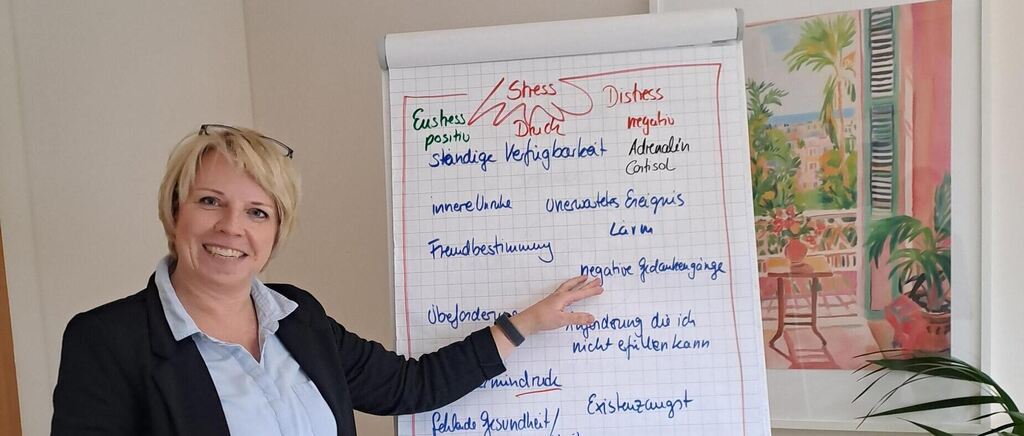 Stress
Eustress Distress
positiv Druck negativ
ständige Verfügbarkeit Adrenalin
Cortisol
innere Unruhe unerwartetes Ereignis
Lärm
Fremdbestimmung
negative Gedankengänge
Anforderung die ich
nicht erfüllen kann
Existenzangst
fehlende Gesundheit/